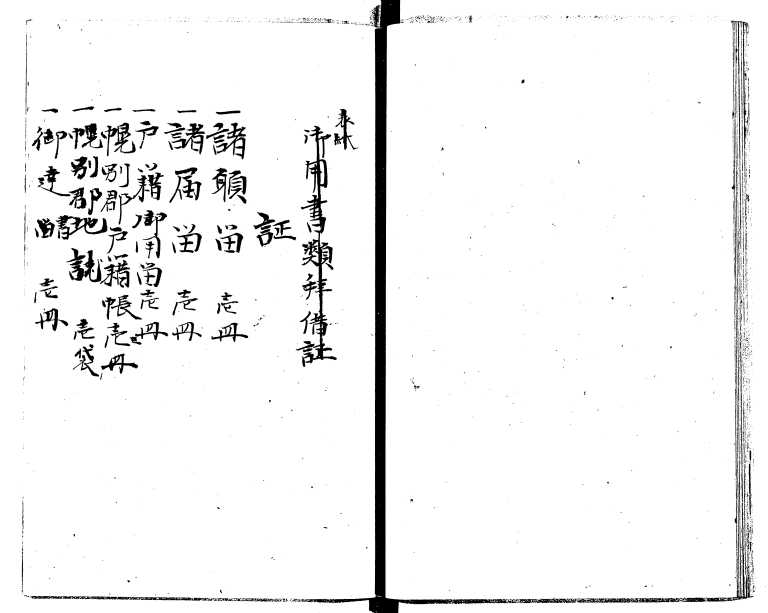 表紙
御用書類拝借証
証
一諸願留 壱冊
一諸届留 壱冊
一戸籍御用留壱冊
一幌別郡戸籍帳壱冊
一幌別郡地誌 壱袋
一御達書留 壱冊